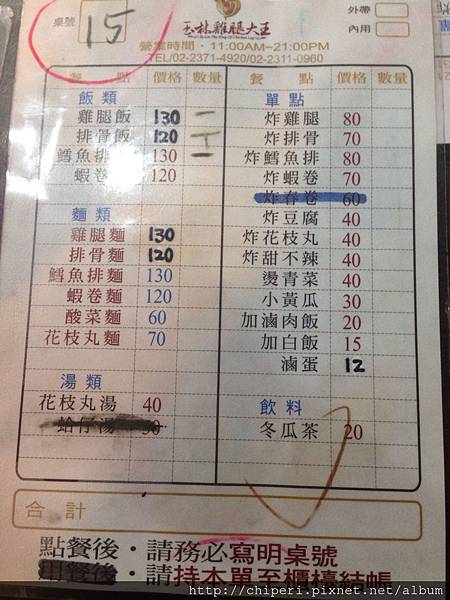 桌號 15
玉林雞腿大王
外帶
內用
營業時間·11:00AM~21:00PM
TEL/02-2371-4920/02-2311-0960
餐點 價格 數量 餐點 價格 數量
飯類
雞腿飯 130 一
排骨飯 120
鱈魚排 130 一
蝦卷 120
麵類
雞腿麵 130
排骨麵 120
鱈魚排麵 130
蝦卷麵 120
酸菜麵 60
花枝丸麵 70
湯類
花枝丸湯 40
蛤仔湯 30
單點
炸雞腿 80
炸排骨 70
炸鱈魚排 80
炸蝦卷 70
炸春卷 60
炸豆腐 40
炸花枝丸 40
炸甜不辣 40
燙青菜 40
小黃瓜 30
加滷肉飯 20
加白飯 15
滷蛋 12
飲料
冬瓜茶 20
合計
點餐後·請務必寫明桌號
用餐後·請持本單至櫃檯結帳
http://chiperi.pixnet.net/album